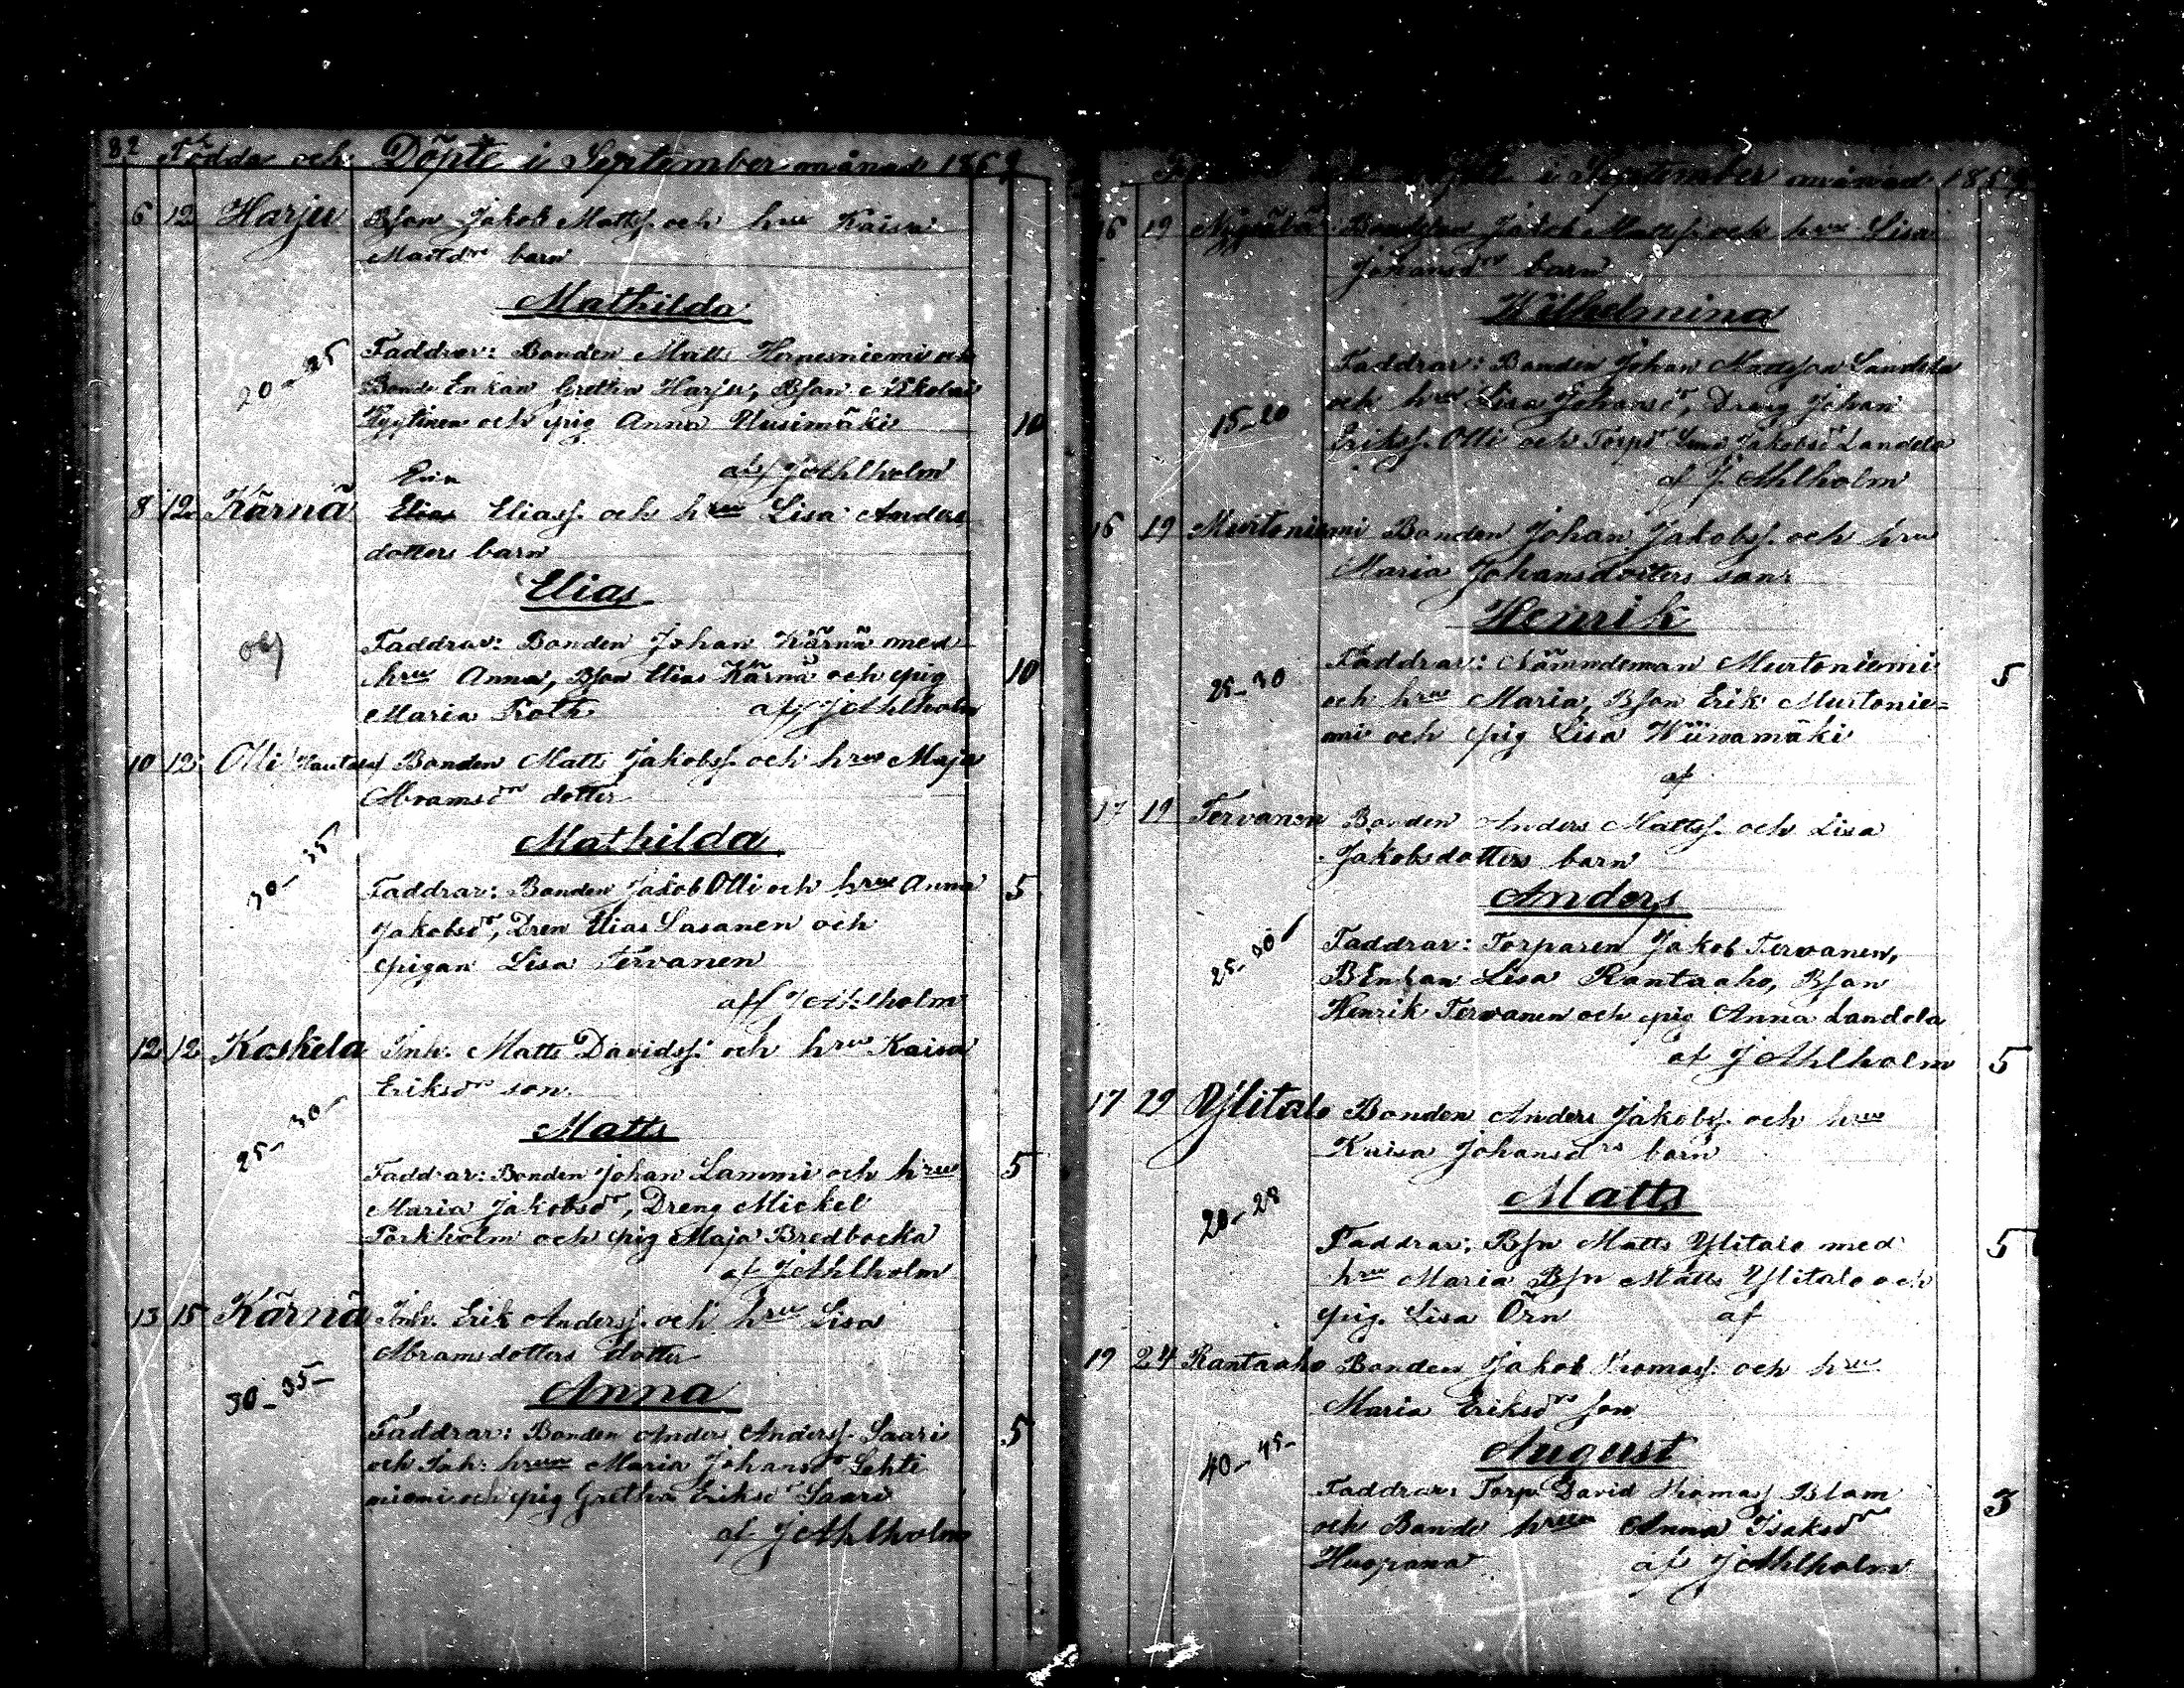 82 Födda och Döpte i September månad 186
6 12 Harju Bson Jakob Matts. och hru Kaisa
Mattdrs barn
Mathilda
Faddrar: Bonden Matts Hernesniemi och
20-25 Bonde Enkan Gretha Harju, Bson Nikolai
Hyytinen och pig Anna Uusimäki 10
af J Ahlholm
8 12 Kärnä Elias Eliass. och hru Lisa Anders
dotters barn
Elias
Faddrar: Bonden Johan Kärnä med
hru Anna, Bson Elias Kärnä och pig 10
Maria Roth af J Ahlholm
10 12 Olli Bonden Matts Jakobss. och hru Maja
Abramsdrs dotter
Mathilda
30-35 Faddrar: Bonden Jakob Olli och hru Anna 5
Jakobsdr, Dren Elias Sasanen och
pigan Lisa Tervanen
af J Ahlholm
12 12 Koskela Inh. Matts Davidss. och hru Kaisa
Eriksdrs son
25-30- Matts
Faddrar: Bonden Johan Lammi och hru 5
Maria Jakobsdr, Dreng Mickel
Torkholm och pig Maja Bredbacka
af J Ahlholm
13 15 Kärnä Inh. Erik Anderss. och hru Lisa
Abramsdotters dotter
30-35- Anna
Faddrar: Bonden Anders Anderss. Saari 5
och Inh: hrun Maria Johansdr Lehti
niemi och pig Gretha Eriksdr Saari
af J Ahlholm
i September månad 185
16 19 Jakob Matts. och hru Lisa
Johansdrs barn
Wilhelmina
Faddrar: Bonden Johan Mattsson Landela
15-20 och hru Lisa Johansdr, Dreng Johan
Erikss. Olli och Jakobsdr Landela
af J. Ahlholm
16 19 Murtoniemi Bonden Johan Jakobss. och hru
Maria Johansdotters son
Henrik
25-30 Faddrar: Nämndeman Murtoniemi 5
och hru Maria, Bson Erik Murtonie=
mi och pig Lisa Wiinamäki
af
17 19 Tervanen Bonden Anders Mattss. och Lisa
Jakobsdotters barn
Anders
25-30 Faddrar: Torparen Jakob Tervanen,
BEnkan Lisa Rantaaho, Bson
Henrik Tervanen och pig Anna Landela
af J Ahlholm 5
17 29 Ylitalo Bonden Anders Jakobss. och hru
Kaisa Johansdrs barn
Matts
Faddrar: Bsn Matts Ylitalo med 5
hru Maria Bsn Matts Ylitalo och
pig. Lisa Örn af
19 24 Rantaaho Bonden Jakob Thomass. och hru
Maria Eriksdrs son
40-45- August
Faddrar: Torp. David Thomass Blom 3
och Bonde hrun Anna Isaksdr
Huopana af J Ahlholm